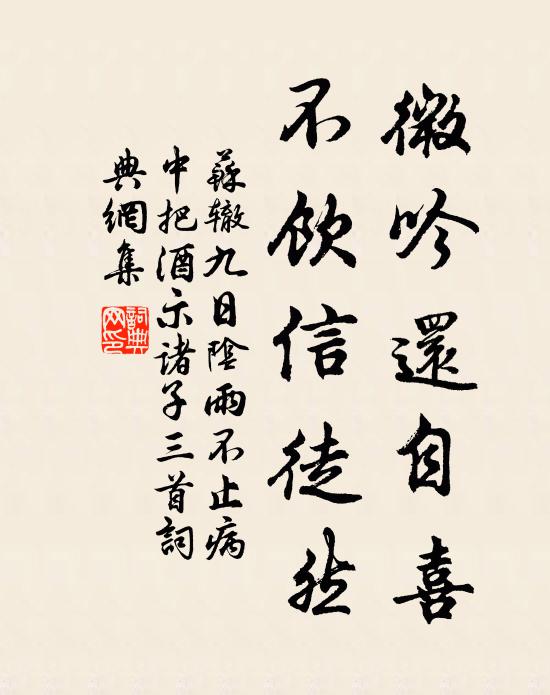 微吟還自喜
不飲信徒然
蘇轍九日陰雨不止病
中把酒示諸子三首詞
典網集
詞典網印